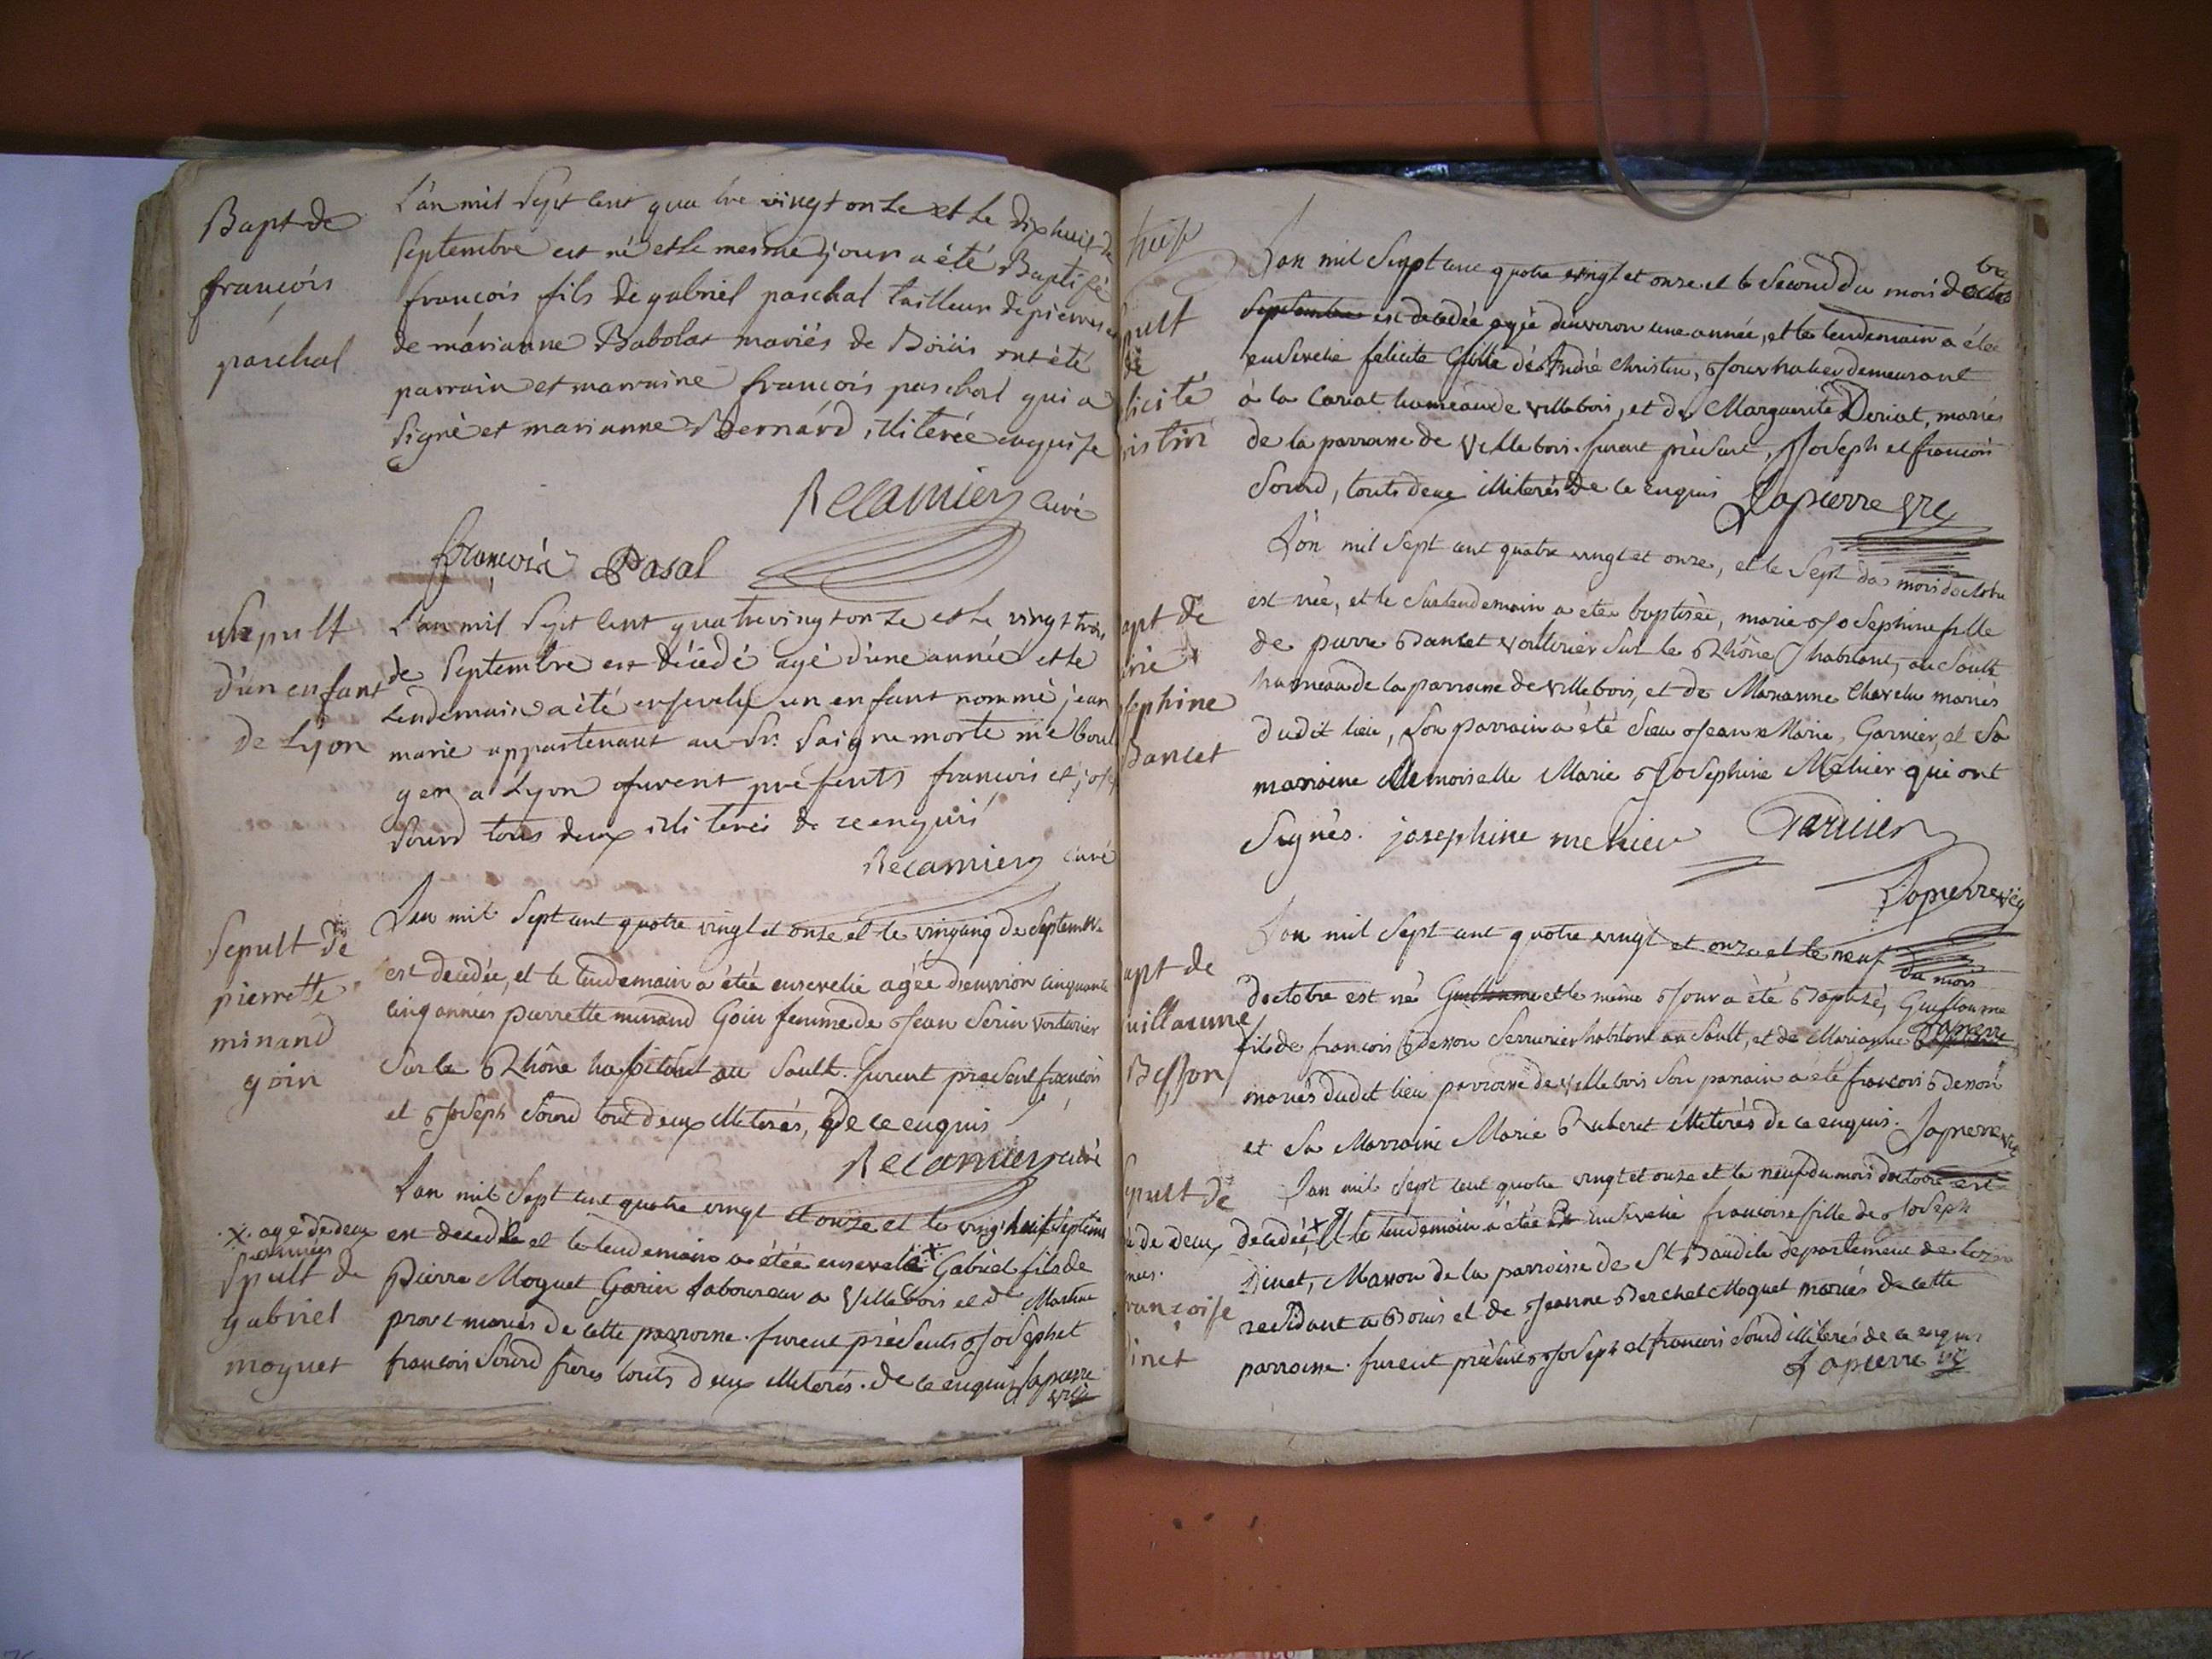 Bapt de
françois
paschal
L'an mil sept cent quatre vingt onze et le dix huit de
septembre est né et le mesme jour a été Baptisé
françois fils de gabriel paschal tailleur de pierres et
de márianne Babolat mariés de Boüis ont été
parrain et marraine françois paschal qui a
signé et marianne Bernárd illiterée enquise
Recamier Curé
françois Pasal
Sepult
d'un enfant
de Lyon
L'an mil sept cent quatrevingt onze et le vingt trois
de septembre est décédé agé d'une année et le
lendemain a été ensevely un enfant nommé jean
marie appartenant au Sr. Saignemorte me Boul
ger a Lyon furent présents francois et jose
sourd tous deux illiterés de ce enquis
Recamier Curé
Sepult de
pierrette
minand
goin
L'an mil sept cent quatre vingt et onze et le vingcinq de septembre
est decedée, et le lendemain a étée ensevelie agée d'environ cinquante
cinq années pierrette minand Goin femme de Jean Serin voiturier
sur le Rhône habitant au Sault. furent present francois
et Joseph Sourd tout deux illiterés, de ce enquis
Recamier curé
x. agé de deux
années
Spult de
gabriel
moguet
L'an mil sept cent quatre vingt et onze et le vingt neuf septembre
est decedé et le lendemain a étée enseveli x Gabriel fils de
Pierre Moguet Garin laboureur a Villebois et de Marthe
provt mariés de cette parroisse. furent présents Joseph et
francois Sourd freres touts deux illiterés. de ce enquis Lapierre
vre
pult
de
licité
istin
L'an mil sept cent quatre vingt et onze et le second du mois d'octobre
septembre est decedée agée d'environ une année, et le lendemain a été
ensevelie felicité fille de André Christin, Journalier demeurant
à la Cariat hameau de villebois, et de Marguerite Doriat, mariés
de la parroisse de Villebois. furent présent, Joseph et françois
Sourd, touts deux illiterés de ce enquis Lapierre vre
apt de
rie
sephine
Bancet
L'an mil sept cent quatre vingt et onze, et le sept du mois d'octobre
est née, et le surlendemain a étée baptisée, marie Josephine fille
de pierre Bancet voiturier sur le Rhône habitant, au Sault
hameau de la parroisse de villebois, et de Marianne Chavelu mariés
dudit lieu, son parrain a été sieur Jean Marie Garnier, et sa
marraine Demoiselle Marie Josephine Méhier qui ont
signés. josephine mehier Garnier
Lapierre vre
apt de
uillaume
Besson
L'an mil sept cent quatre vingt et onze et le neuf du mois
d'octobre est né Guillaume et le même Jour a été Baptisé, Guillaume
fils de francois Besson serrurier habitant au Sault, et de Marianne Lapierre
mariés dudit lieu parroisse de villebois son parrain a été francois Besson
et sa Marraine Marie Ruberet illiterés de ce enquis. Lapierre vre
pult de
é de deux
nées.
rançoise
inet
L'an mil sept cent quatre vingt et onze et le neuf du mois d'octobre est
decedée, x et le lendemain a étée ensevelie francoise fille de Joseph
Dinet, Masson de la parroisse de St Baudile departement de
residant a Bouis et de Jeanne Berchet Moguet mariés de cette
parroisse. furent présents Joseph et francois Sourd illiterés de ce enquis
Lapierre vre